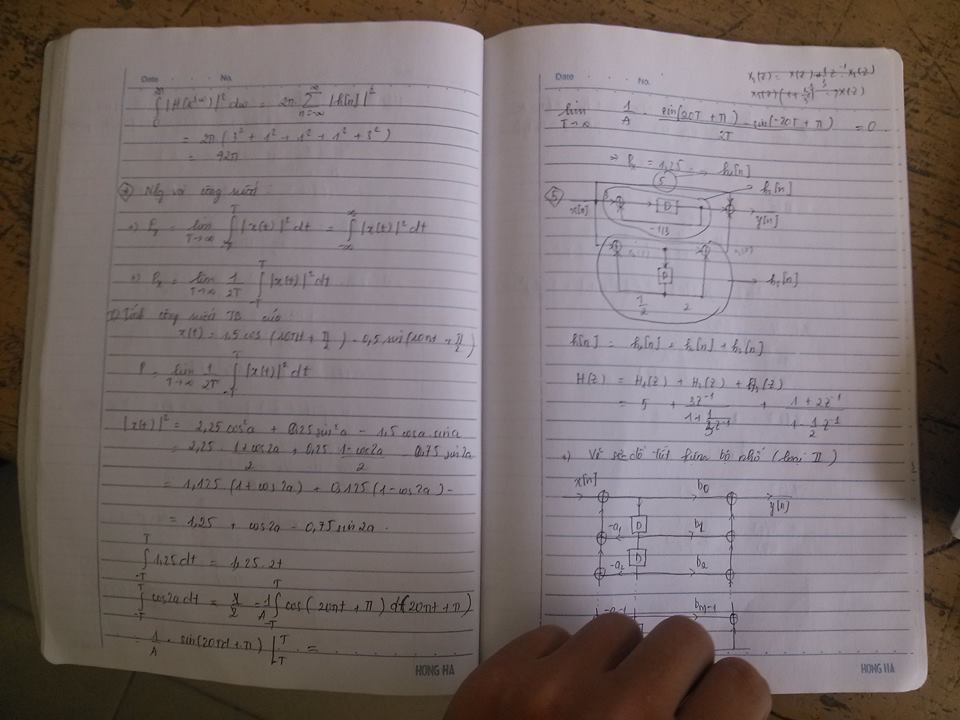 Date No.
∫₀^{2π} |H(e^{jω})|² dω = 2π Σ_{n=-∞}^{∞} |h[n]|²
= 2π (3² + 1² + 1² + 1² + 3²)
= 42π
④ công suất
lim_{T→∞} ∫_{-T}^{T} |x(t)|² dt = ∫_{-∞}^{∞} |x(t)|² dt
Pₓ = lim_{T→∞} 1/2T ∫_{-T}^{T} |x(t)|² dt
Tính công suất TB của
x(t) = 1,5 cos (10πt + π/2) - 0,5 sin (10πt + π/2)
P = lim_{T→∞} 1/2T ∫_{-T}^{T} |x(t)|² dt
|x(t)|² = 2,25 cos²a + 0,25 sin²a - 1,5 cosa.sina
= 2,25 . (1+cos2a)/2 + 0,25 (1-cos2a)/2 - 0,75 sin2a
= 1,125 (1+cos2a) + 0,125 (1-cos2a) -
= 1,25 + cos2a - 0,75 sin2a.
∫_{-T}^{T} 1,25 dt = 1,25.2t
∫_{-T}^{T} cos2a dt = ∫_{-T}^{T} cos(20πt + π) d(20πt + π)
1/A . sin(20πt + π) |_{-T}^{T} =
HONG HA
Date No.
lim_{T→∞} 1/A . (sin(20T + π) - sin(-20T + π))/2T = 0
⇒ Pₓ = 1,25
h₁[n]
⑤
5
h₂[n]
x[n]
3
D
y[n]
-1/3
D
h₃[n]
1/2
2
h[n] = h₁[n] + h₂[n] + h₃[n]
H(z) = H₁(z) + H₂(z) + H₃(z)
= 5 + 3z⁻¹/(1 + 1/3 z⁻¹) + (1 + 2z⁻¹)/(1 - 1/2 z⁻¹)
Vẽ sơ đồ bộ nhớ (loại II)
x[n]
b₀
y[n]
D
-a₁
b₁
D
-a₂
b₂
HONG HA